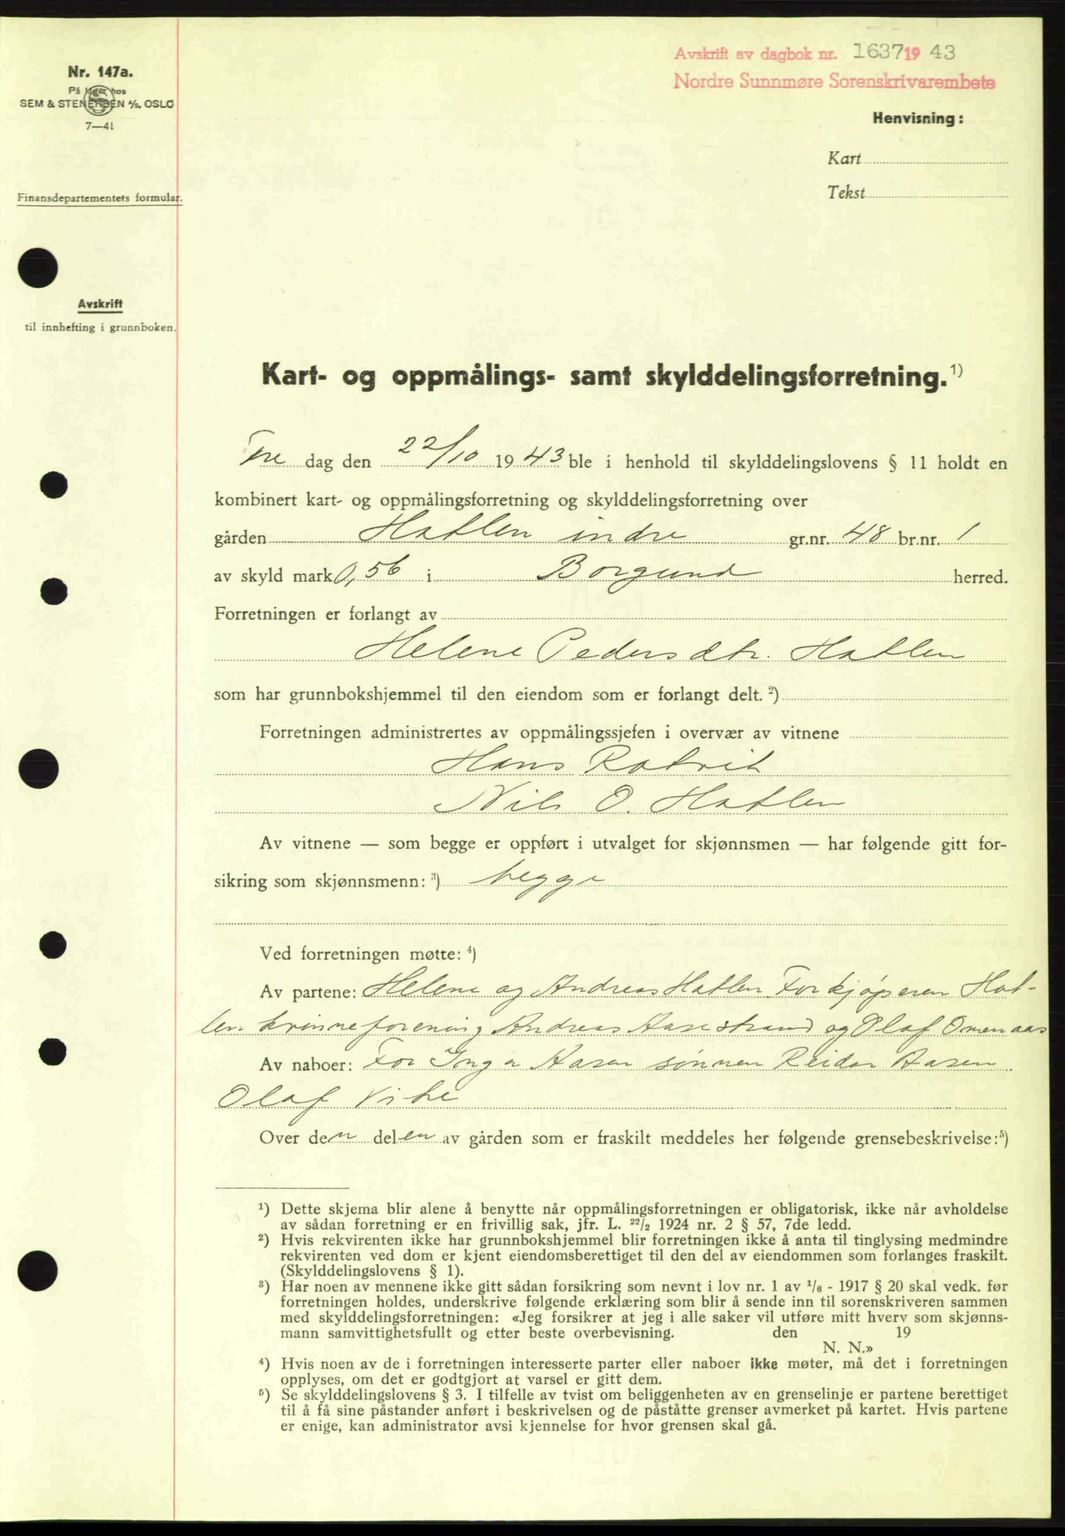 Avskrift av dagbok nr. 1637 1943
Nordre Sunnmøre Sorenskrivarembete
Nr. 147a.
På lager hos
SEM & STENERSEN A/S, OSLO
7—41
Henvisning:
Kart
Tekst
Finansdepartementets formular.
Avskrift
til innhefting i grunnboken.
Kart- og oppmålings- samt skylddelingsforretning.¹)
Fre dag den 22/10 1943 ble i henhold til skylddelingslovens § 11 holdt en
kombinert kart- og oppmålingsforretning og skylddelingsforretning over
gården Hatlen indre gr.nr. 48 br.nr. 1
av skyld mark 0,56 i Borgund herred.
Forretningen er forlangt av
Helene Pedersdtr. Hatlen
som har grunnbokshjemmel til den eiendom som er forlangt delt. ²)
Forretningen administrertes av oppmålingssjefen i overvær av vitnene
Hans Ratvik
Nils O. Hatlen
Av vitnene — som begge er oppført i utvalget for skjønnsmen — har følgende gitt for-
sikring som skjønnsmenn: ³) begge
Ved forretningen møtte: ⁴)
Av partene: Helene og Andreas Hatlen. For kjøperen Hat-
len kvinneforening Andreas Aasestrand og Olaf Omenaas
Av naboer: For Inga Aasen sønnen Reidar Aasen
Olaf Vike
Over den delen av gården som er fraskilt meddeles her følgende grensebeskrivelse: ⁵)
¹) Dette skjema blir alene å benytte når oppmålingsforretningen er obligatorisk, ikke når avholdelse
av sådan forretning er en frivillig sak, jfr. L. 22/2 1924 nr. 2 § 57, 7de ledd.
²) Hvis rekvirenten ikke har grunnbokshjemmel blir forretningen ikke å anta til tinglysing medmindre
rekvirenten ved dom er kjent eiendomsberettiget til den del av eiendommen som forlanges fraskilt.
(Skylddelingslovens § 1).
³) Har noen av mennene ikke gitt sådan forsikring som nevnt i lov nr. 1 av 1/6 - 1917 § 20 skal vedk. før
forretningen holdes, underskrive følgende erklæring som blir å sende inn til sorenskriveren sammen
med skylddelingsforretningen: «Jeg forsikrer at jeg i alle saker vil utføre mitt hverv som skjønns-
mann samvittighetsfullt og etter beste overbevisning. den 19
N. N.»
⁴) Hvis noen av de i forretningen interesserte parter eller naboer ikke møter, må det i forretningen
opplyses, om det er godtgjort at varsel er gitt dem.
⁵) Se skylddelingslovens § 3. I tilfelle av tvist om beliggenheten av en grenselinje er partene berettiget
til å få sine påstander anført i beskrivelsen og de påståtte grenser avmerket på kartet. Hvis partene
er enige, kan administrator avsi kjennelse for hvor grensen skal gå.